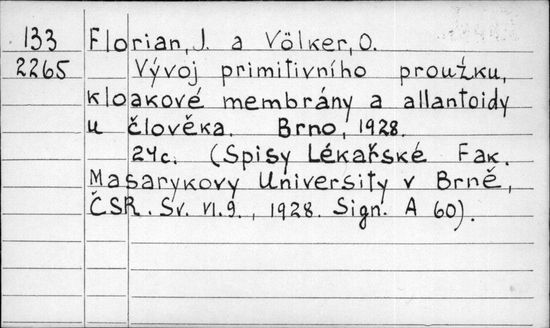 133 Florian, J. a Völker, O.
2265 Vývoj primitivního proužku,
kloakové membrány a allantoidy
u člověka. Brno, 1928.
24c. (Spisy Lékařské Fak.
Masarykovy University v Brně,
ČSR. Sv. VI.9., 1928. Sign. A 60).